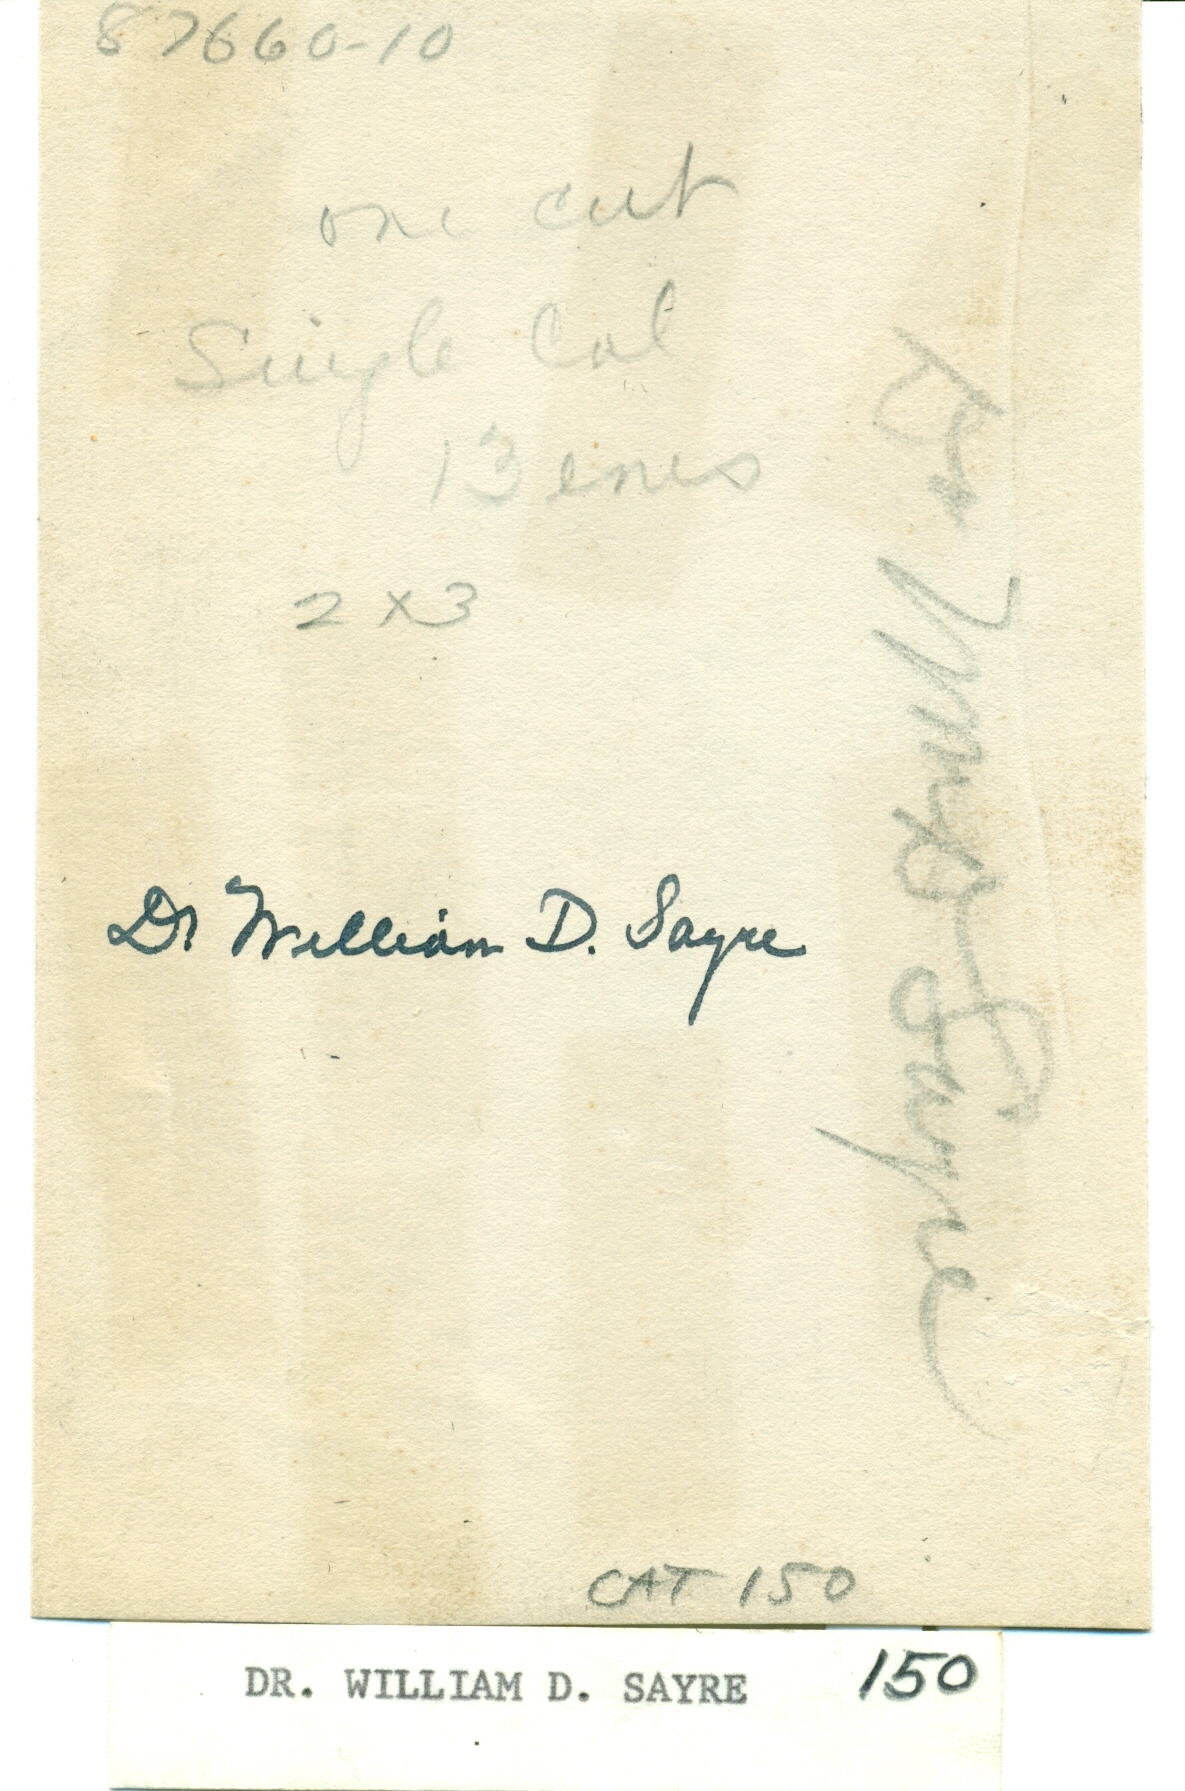 87660-10
one cut
Single Col
13 ems
2 x 3
Dr Wm D Sayre
Dr William D. Sayre
CAT 150
DR. WILLIAM D. SAYRE 150